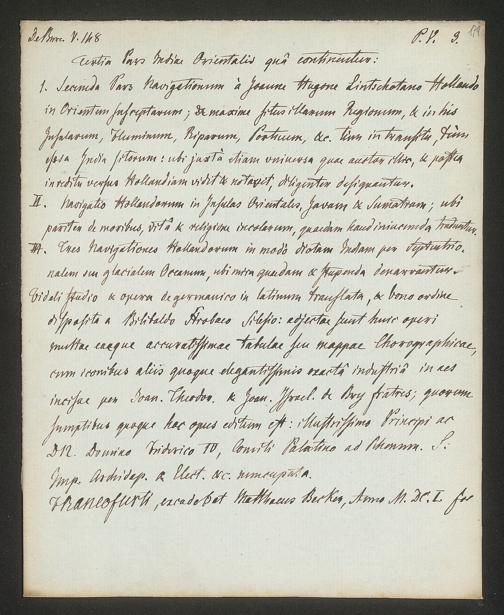 De Bure. V. 148 P. V. 3.
Tertia Pars Indiae Orientalis quâ continentur:
1. Secunda Pars Navigationum à Joanne Hugone Lintschotano Hollando
in Orientem susceptarum; & maxime situs illarum Regionum, & in his
Insularum, Fluminum, Riparum, Portuum, &c. tum in transitu, tum
ipsa India sitorum: ubi juxtà etiam universa quae auctor illic, & passim
in reditu versus Hollandiam vidit & notavit, diligenter designantur.
II. Navigatio Hollandorum in Insulas Orientales, Javam & Sumatram; ubi
pariter de moribus, vitâ & religione incolarum, quaedam haud injucunda traduntur.
III. Tres Navigationes Hollandorum in modò dictam Indiam per Septentrio-
nalem seu glacialem Oceanum, ubi mira quaedam & stupenda denarrantur.
Fideli studio & opera de germanico in latinum translata, & bono ordine
disposita a Bilibaldo Strobaeo Silesio: adjectae sunt huic operi
multae eaeque accuratissimae tabulae seu mappae Chorographicae,
cum iconibus aliis quoque elegantissimis exactâ industriâ in aes
incisae per Joan. Theodor. & Joan. Israel. de Bry fratres; quorum
sumptibus quoque hoc opus editum est: illustrissimo Principi ac
Dno. Domino Friderico IV, Comiti Palatino ad Rhenum. S:
Imp. Archidap. & Elect. &c. nuncupata.
Francofurti, excudebat Matthaeus Becker, Anno M. DC. I. fol